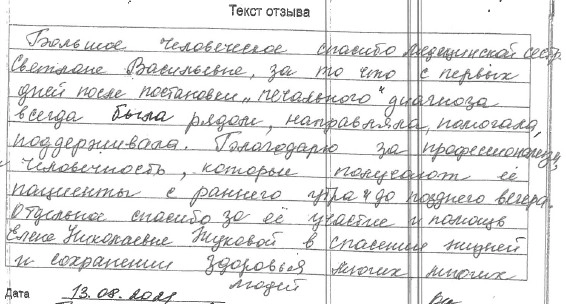 Текст отзыва
Большое человеческое спасибо медецинской сестре
Светлане Васильевне, за то что с первых
дней после постановки „печального" диагноза
всегда была рядом, направляла, помогала,
поддерживала. Благодарю за профессионализм,
человечность, которые получают её
пациенты с раннего утра и до позднего вечера.
Отдельное спасибо за её участие и помощь
Елене Николаевне Жуковой в спасении жизней
и сохранении здоровья многих многих
людей
Дата 13.08.2021